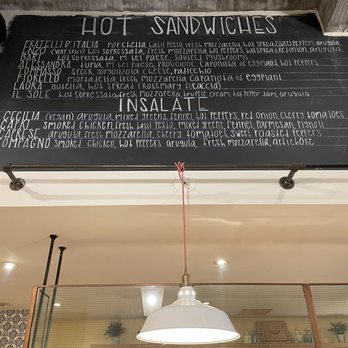 HOT SANDWICHES
FRATELLI D'ITALIA porchetta, basil pesto, fresh mozzarella, hot spread, sweet peppers, arugula
ENZO fresh mozzarella, hot peppers, arugula
BARI hot sopressata, mushrooms
ALESSANDRA tuna, provolone, caponata of eggplant, hot peppers
TOMMASO speck, gorgonzola cheese, radicchio
FIORELLO mortadella, fresh mozzarella, caponata of eggplant
LAURA nutella, hot spread (rosemary focaccia)
IL SOLE hot sopressata, fresh mozzarella, truffle cream, hot pepper jam, arugula
INSALATE
CECILIA (vegan) arugula, mixed greens, fennel, hot peppers, red onion, cherry tomatoes
CAPRI smoked chicken, fresh basil pesto, mixed greens, fennel, parmesan, pignoli
arugula, fresh mozzarella, cherry tomatoes, sweet roasted peppers
smoked chicken, hot peppers, arugula, fresh mozzarella, artichoke
INSALATE